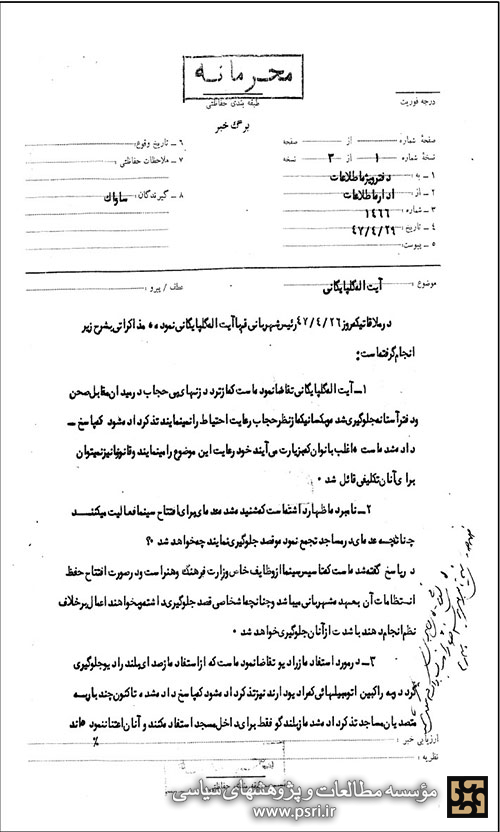 محرمانه
طبقه بندی حفاظتی
درجه فوریت
برگ خبر
صفحهٔ شماره از صفحه
نسخهٔ شماره ۱ از ۳ نسخه
۱ – به : دفتر ویژه اطلاعات
۲ – از : اداره اطلاعات
۳ – شماره : ۱۴۶۶
۴ – تاریخ : ۴۷/۴/۲۹
۵ – پیوست :
۶ – تاریخ وقوع :
۷ – ملاحظات حفاظتی :
۸ – گیرندگان : ساواک
موضوع : آیت اله گلپایگانی عطف / پیرو :
در ملاقاتیکه روز ۴۷/۴/۲۶ رئیس شهربانی قم با آیت اله گلپایگانی نموده مذاکراتی بشرح زیر
انجام گرفته است :
۱ – آیت اله گلپایگانی تقاضا نموده است که از تردد زنهای بی حجاب در میدان مقابل صحن
و دفتر آستانه جلوگیری شده و بکسانیکه از نظر حجاب رعایت احتیاط را نمینمایند تذکر داده شود که پاسخ –
داده شده است اغلب بانوان که بزیارت می آیند خود رعایت این موضوع را مینمایند و قانونا نیز نمیتوان
برای آنان تکلیفی قائل شد .
۲ – نامبرده اظهار داشته است که شنیده شده عده ای برای افتتاح سینما فعالیت میکنند
چنانچه عده ای در مساجد تجمع نموده و قصد جلوگیری نمایند چه خواهد شد ؟
در پاسخ گفته شده است که تاسیس سینما از وظایف خاص وزارت فرهنگ و هنر است و در صورت افتتاح حفظ
انتظامات آن بعهده شهربانی میباشد و چنانچه اشخاصی قصد جلوگیری داشته و بخواهند اعمال بر خلاف
نظم انجام دهند باشدت از آنان جلوگیری خواهد شد .
۳ – در مورد استفاده از رادیو تقاضا نموده است که از استفاده از صدای بلند رادیو جلوگیری
گردد و به راکبین اتومبیلهائی که رادیو دارند نیز تذکر داده شود که پاسخ داده شده تاکنون چند بار بسه
متصدیان مساجد تذکر داده شده از بلندگو فقط برای داخل مسجد استفاده کنند و آنان اعتنا ننموده اند
ارزیابی خبر :
نظریه :
مؤسسه مطالعات و پژوهشهای سیاسی
www.psri.ir